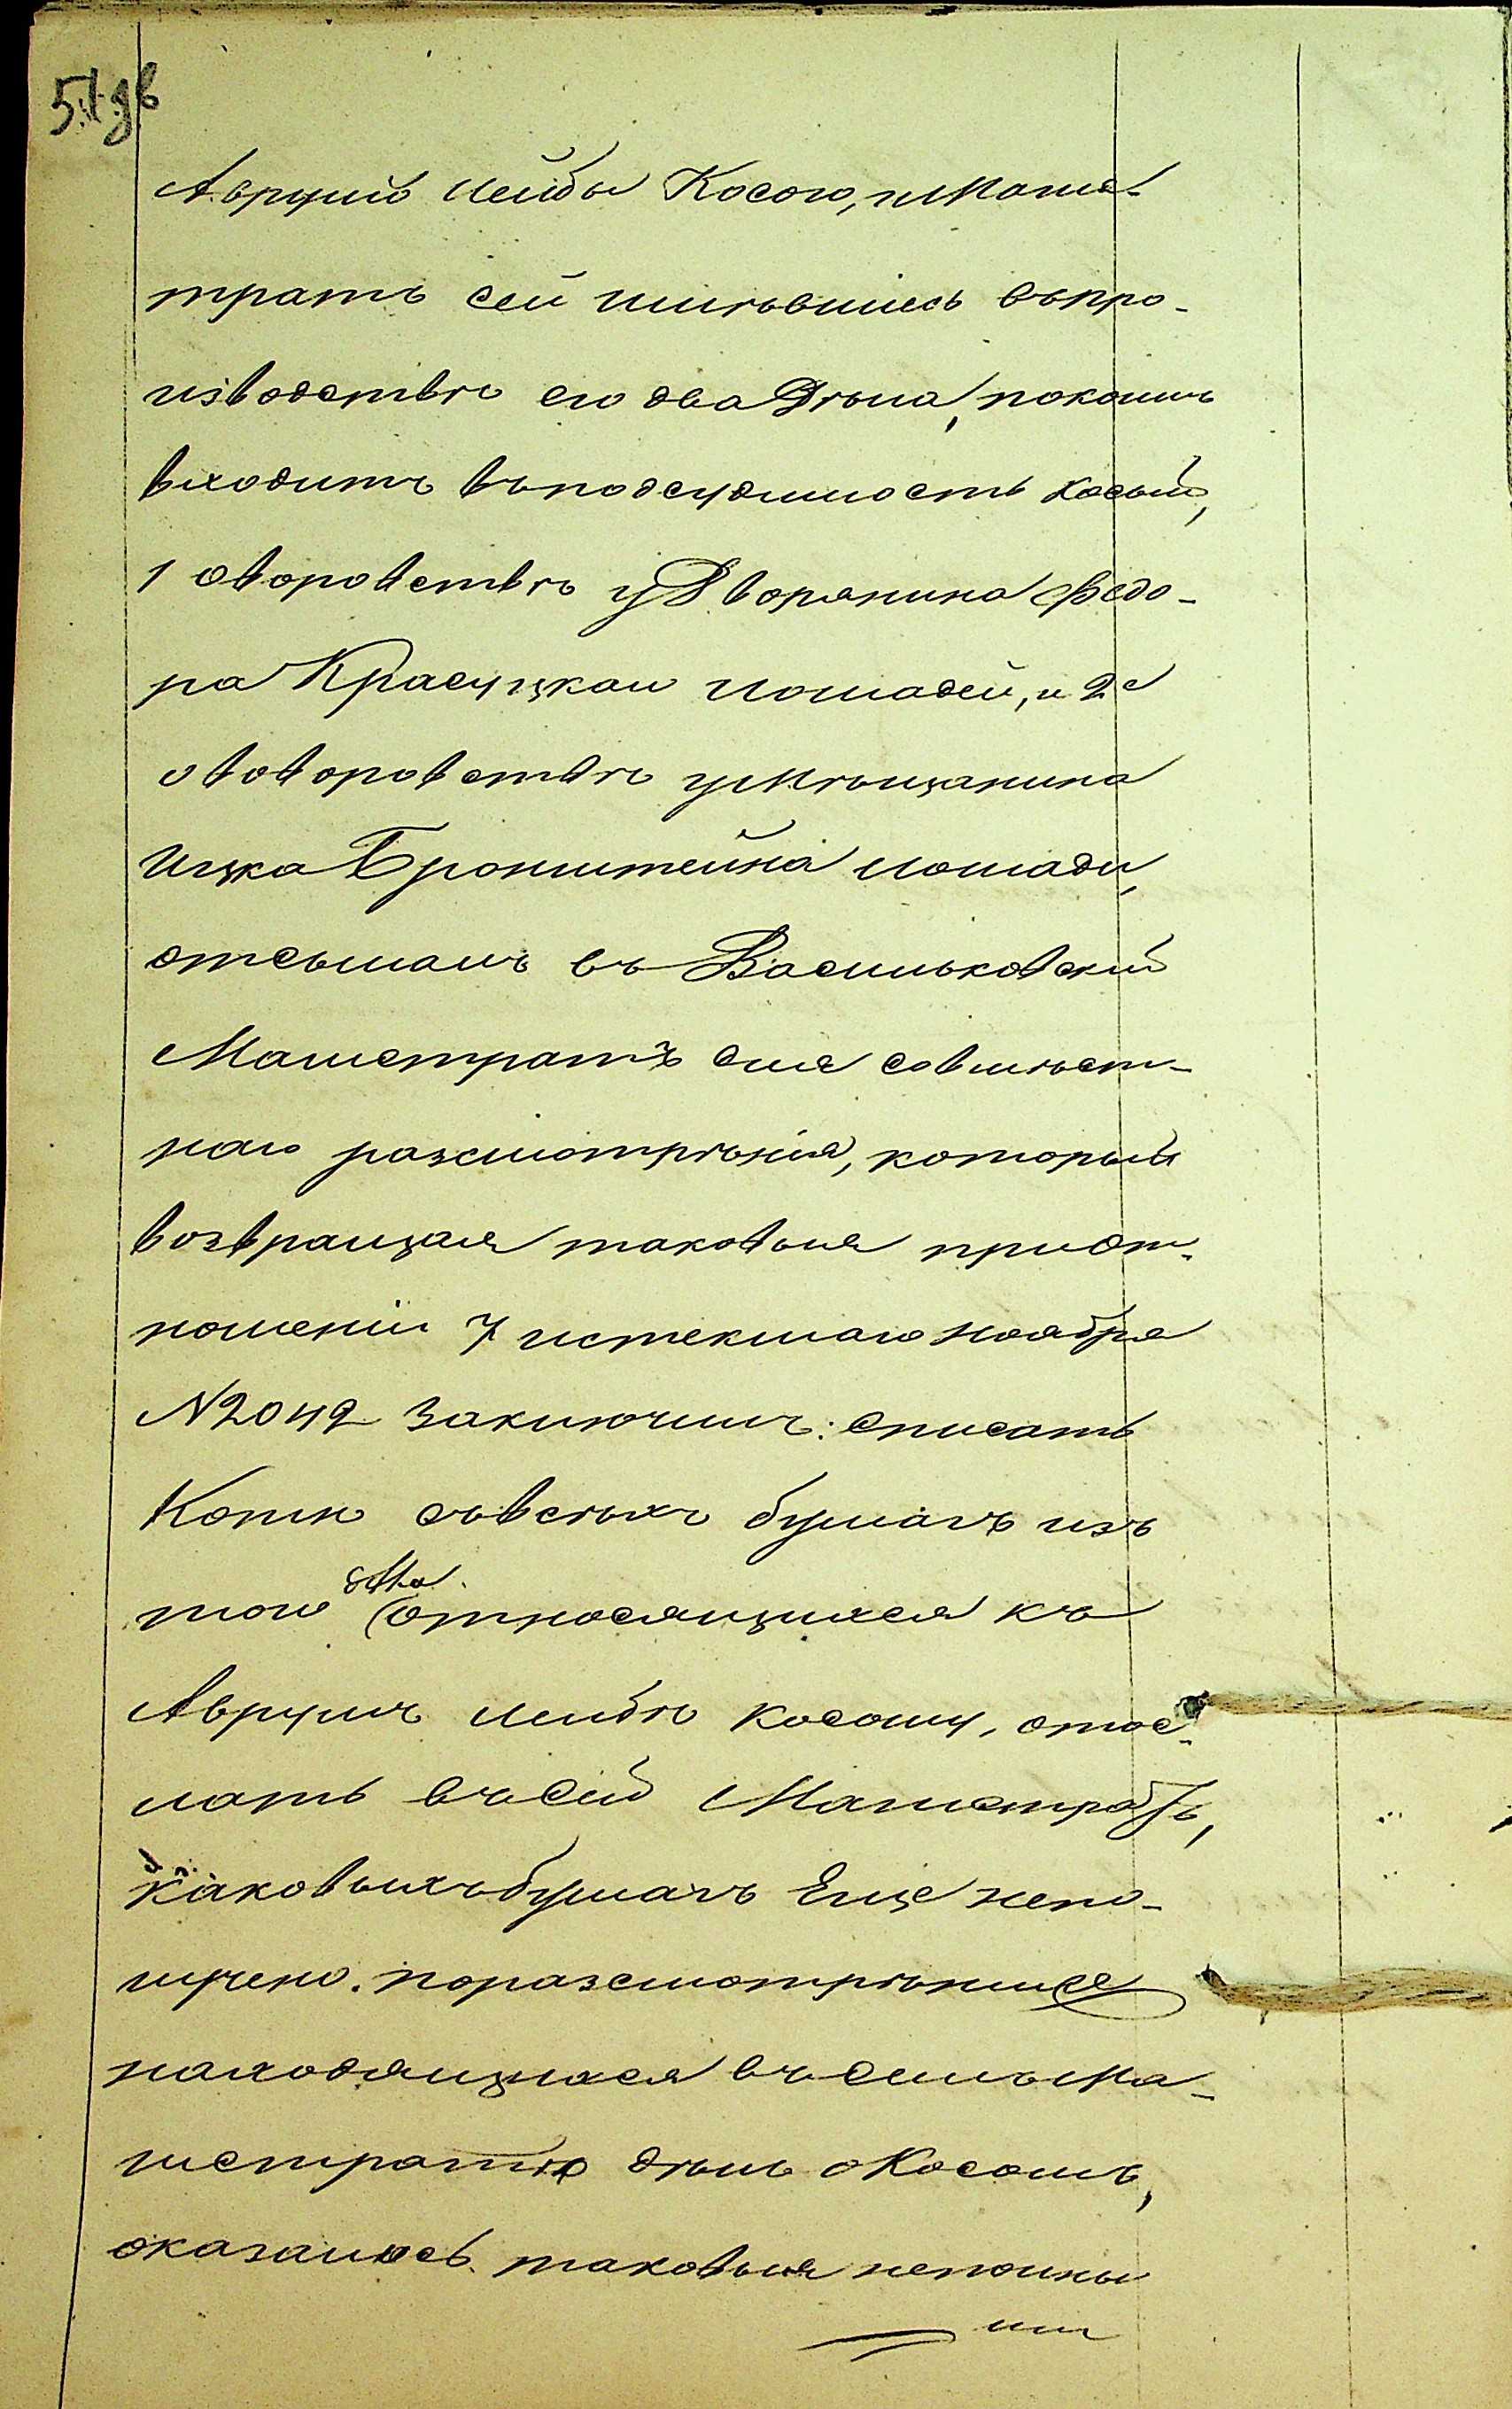 51 дв
Аврумъ Лейбы Косого, и Магис-
тратъ сей имѣвшиесь въ про-
изводствѣ его два Дѣла, по коимъ
входитъ въ подсудимость Косый,
1 о воровствѣ у Дворянина Федо-
ра Красуцкаго лошадей, и 2е
о воровствѣ у Мѣщанина
Ицка Бронштейна лошади,
отсылалъ въ Васильковский
Магистратъ для совмѣст-
наго разсмотрѣнія, который
возвращая таковыя при от-
ношеніи 7 истекшаго Ноября
N 2042 заключилъ: списать
Копію съ всѣхъ бумагъ изъ
того дѣла относящихся къ
Аврумъ Лейбѣ Косому, отос-
лать въ сей Магистратъ,
каковыхъ бумагъ Еще непо-
лучено. по разсмотрѣнию
находящихся въ семъ Ма-
гистратѣ дѣлъ о Косомъ,
оказалось таковыя неполны
ми